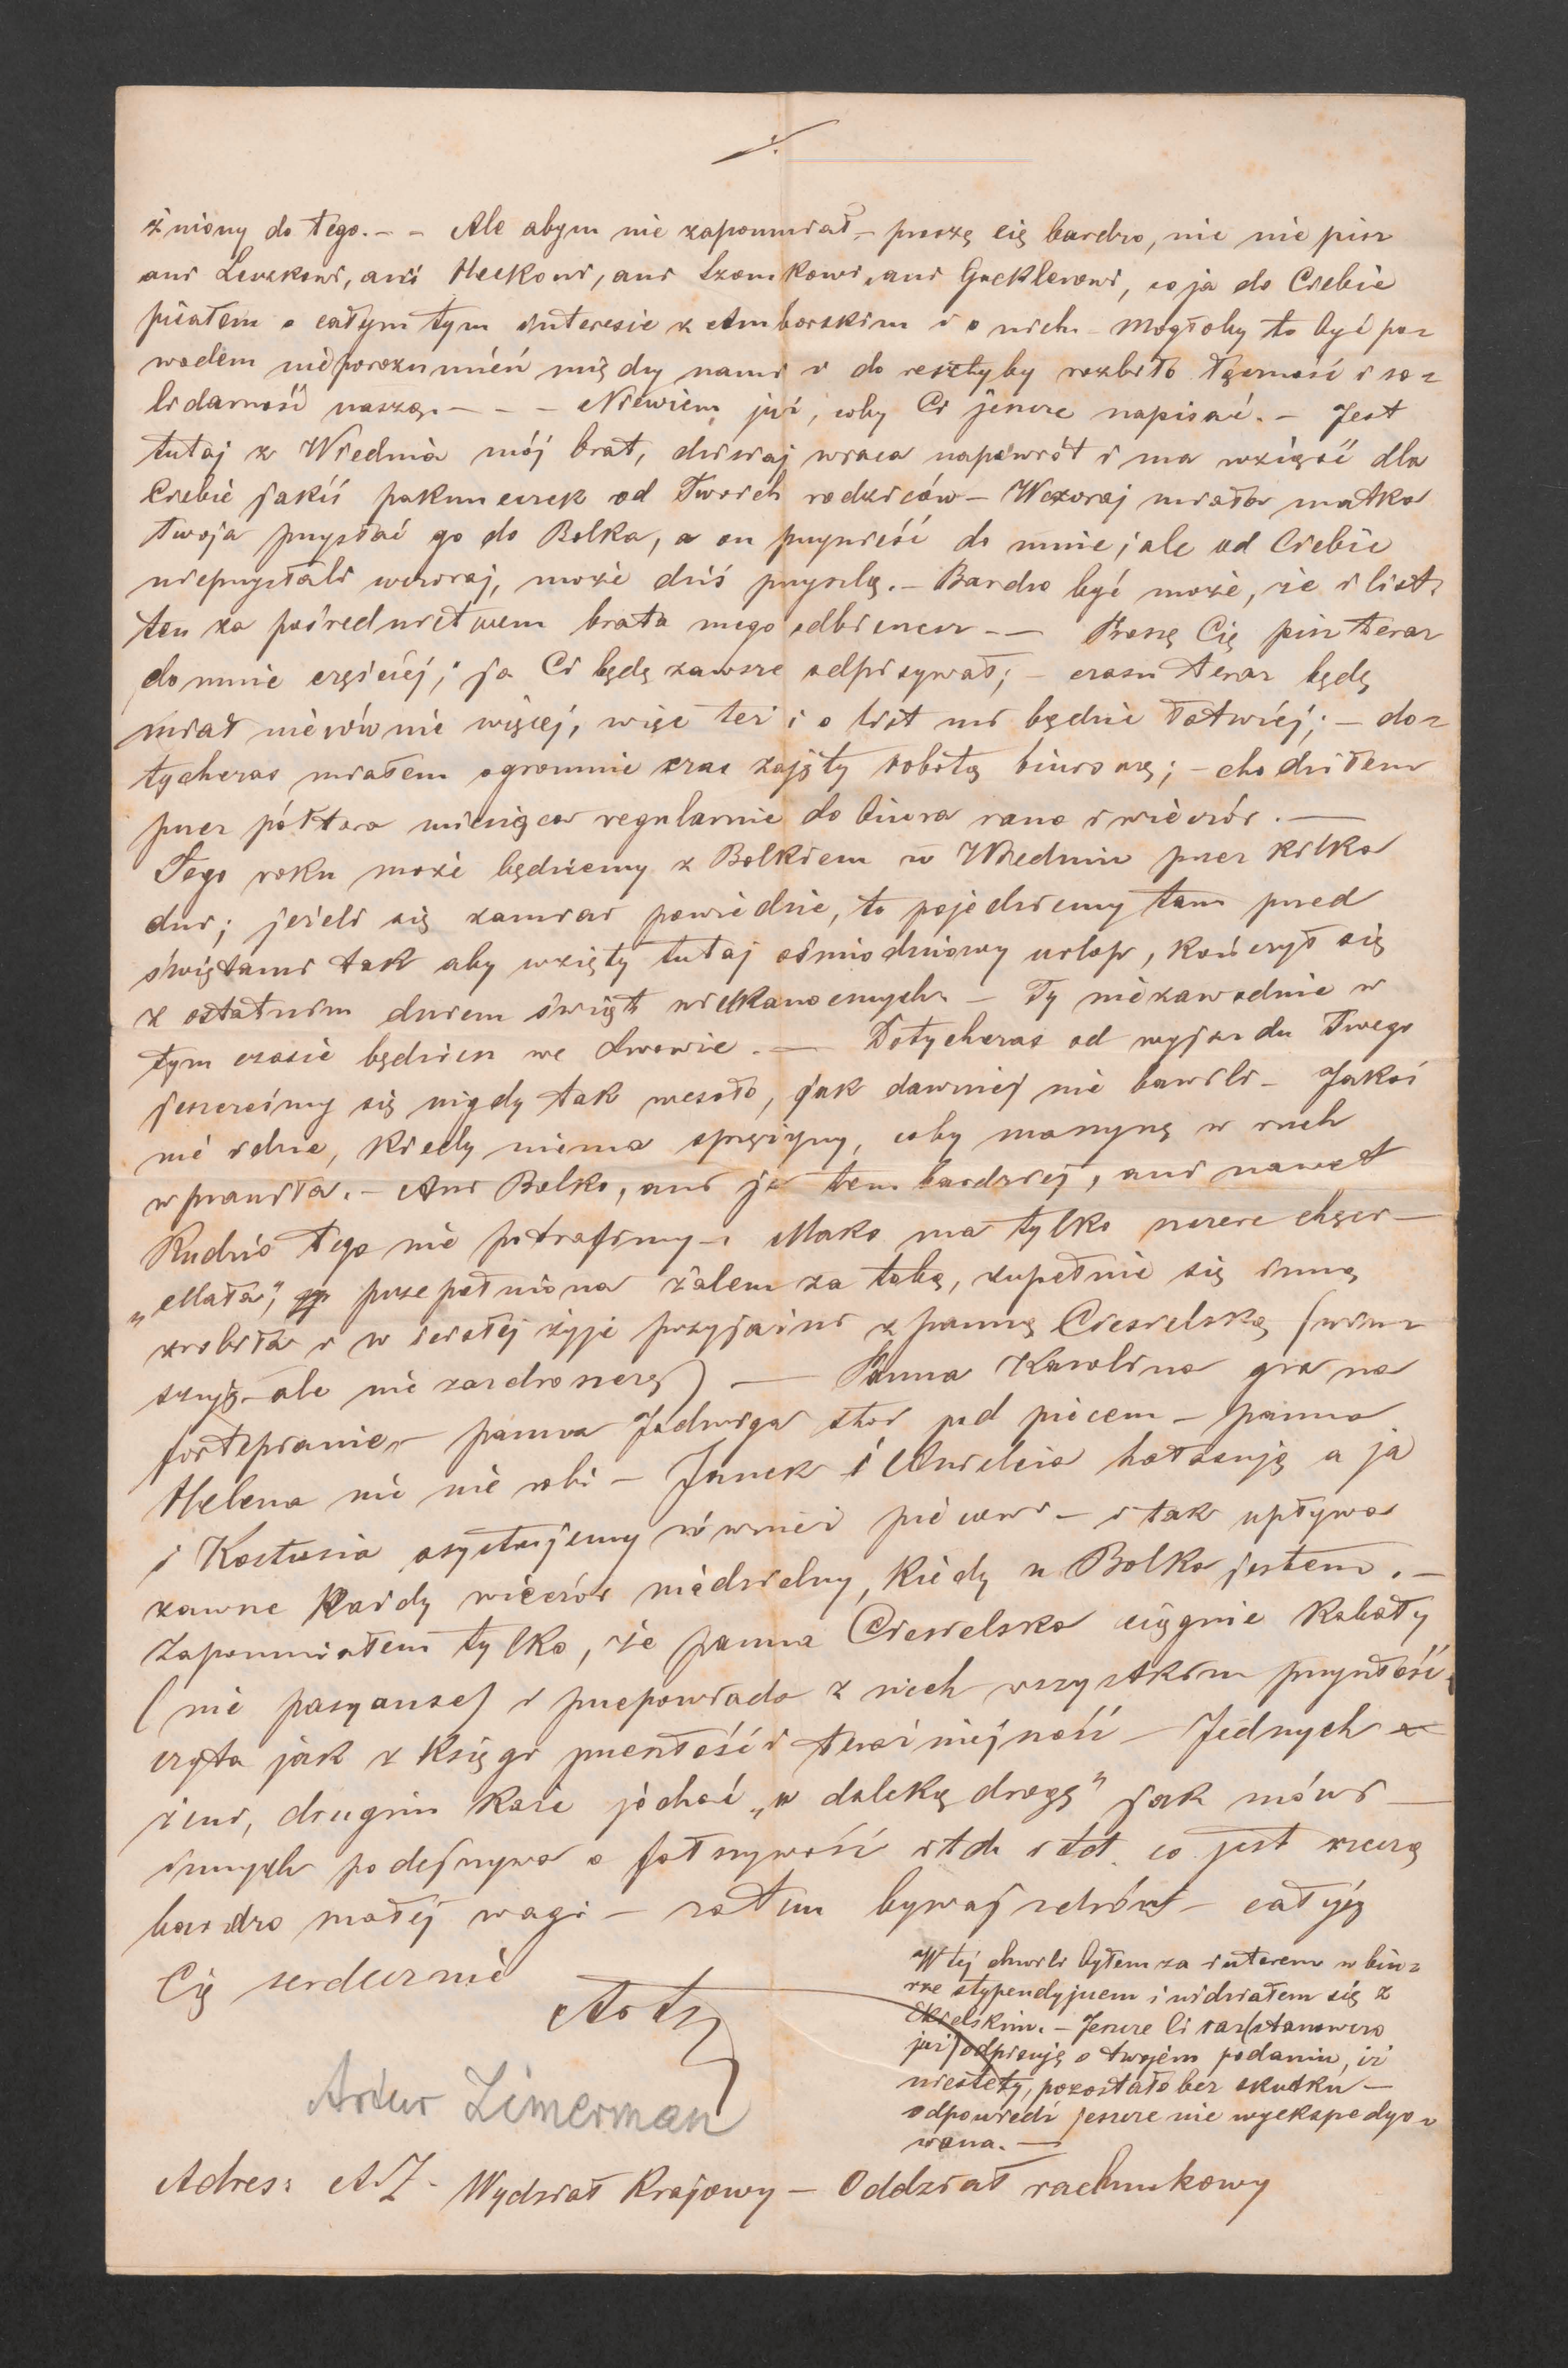 ./.
żniony do tego. – – Ale abym nie zapomniał – proszę cię bardzo, nic nie pisz
ani Leuzkowi, ani Heckowi, ani Szomkowi, ani Gecklerowi, co ja do Ciebie
pisałem o całym tym interesie z Amborskim i o nich – Mogłoby to być po=
wodem nieporozumień między nami i do resztyby rozbiło łączność i so=
lidarność naszą. – – – Niewiem już, coby Ci jeszcze napisać. – Jest
tutaj z Wiednia mój brat, dzisiaj wraca napowrót i ma wziąść dla
Ciebie jakiś pakuneczek od Twoich rodziców – Wczoraj miała matka
twoja przysłać go do Bolka, a on przynieść do mnie; ale od Ciebie
nieprzysłali wczoraj, może dziś przyszlą. – Bardzo być może, że i list
ten za pośrednictwem brata mego odbierzesz – – Proszę Cię pisz teraz
do mnie częściej; ja Ci będę zawsze odpisywał; – czasu teraz będę
miał nierównie więcej, więc też i o list mi będzie łatwiej; – do=
tychczas miałem ogromnie czas zajęty robotą biurową; – chodziłem
przez półtora miesiąca regularnie do biura rano i wieczór. –
Tego roku może będziemy z Bolkiem w Wiedniu przez kilka
dni; jeżeli się zamiar powiedzie, to pojedziemy tam przed
świętami tak aby wzięty tutaj ośmiodniowy urlop, kończył się
z ostatnim dniem świąt wielkanocnych – Ty niezawodnie w
tym czasie będziesz we Lwowie. – Dotychczas od wyjazdu Twego
jeszcześmy się nigdy tak wesoło, jak dawniej nie bawili – Jakoś
nie idzie, kiedy niema sprężyny, coby maszynę w ruch
wprawiła. – Ani Bolko, ani ja tem bardziej, ani nawet
Rudzio tego nie potrafimy –. Mako ma tylko szczere chęci –
„Mała”, przepełniona żalem za tobą, zupełnie się inną
zrobiła i w ścisłej żyje przyjaźni z panną Ciesielską (win=
szuję – ale nie zazdroszczę) — Panna Karolina gra na
fortepianie – panna Jadwiga stoi pod piecem – panna
Helena nic nie robi – Janek i Anielcia hałasują a ja
i Kostusia asystujemy również piecowi – i tak upływa
zawsze każdy wieczór niedzielny, kiedy u Bolka jestem. –
Zapomniałem tylko, że panna Ciesielska ciągnie kabały
(nie pasyanse) i przepowiada z nich wszystkim przyszłość,
czyta jak z księgi przeszłość i teraźniejszość – Jednych
żeni, drugim każe jechać „w daleką drogę” jak mówi –
innych podejrzywa o fałszywość itd. itd. co jest rzeczą
bardzo małej wagi – zatem bywaj zdrów – całuję
Cię serdecznie
ArtZ
W tej chwili byłem za interesem w biu=
rze stypendyjnem i widziałem się z
Ekielskim. – Jeszcze Ci raz (stanowczo
już) odpisuję o twojém podaniu, iż
niestety, pozostało bez skutku –
odpowiedź jeszcze nie wyekspedyo=
wana. —
Artur Zimerman
Adres: AZ. Wydział Krajowy – Oddział rachunkowy